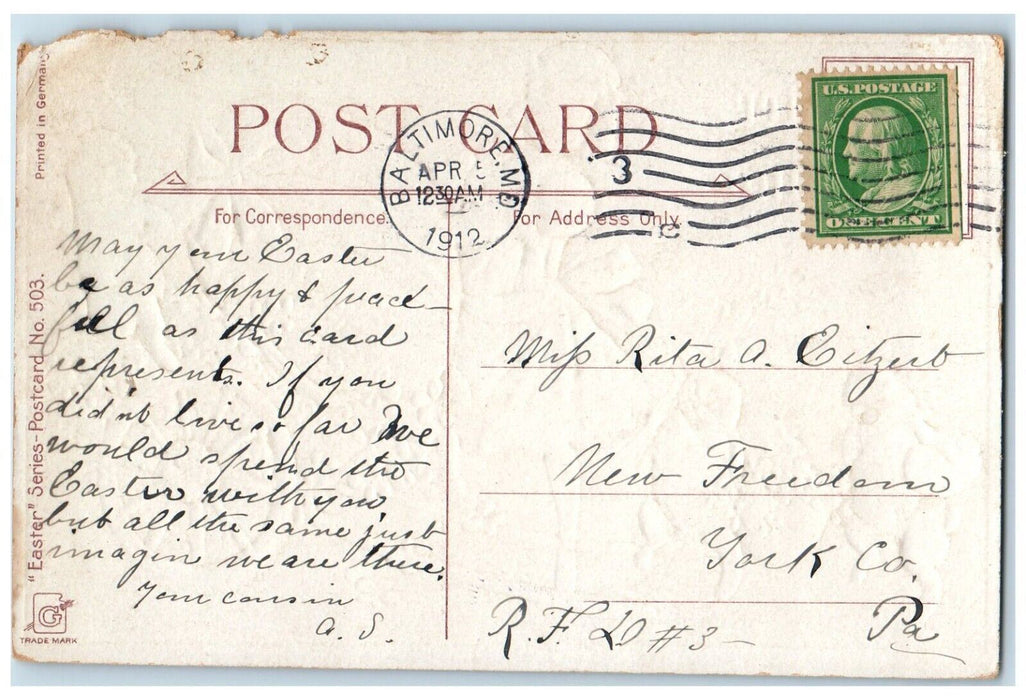 Printed in Germany
POST CARD
BALTIMORE, MD
APR 5
12 30 AM
1912
3
U.S. POSTAGE
ONE CENT
For Correspondence.
For Address Only.
May your Easter
be as happy & peace-
full as this card
represents. If you
did'nt live so far we
would spend the
Easter with you,
but all the same just
imagin we are there.
Your cousin
A. S.
Miss Rita A. Eitzert
New Freedom
York Co.
R. F. D #3 Pa
"Easter" Series-Postcard No. 503.
G
TRADE MARK